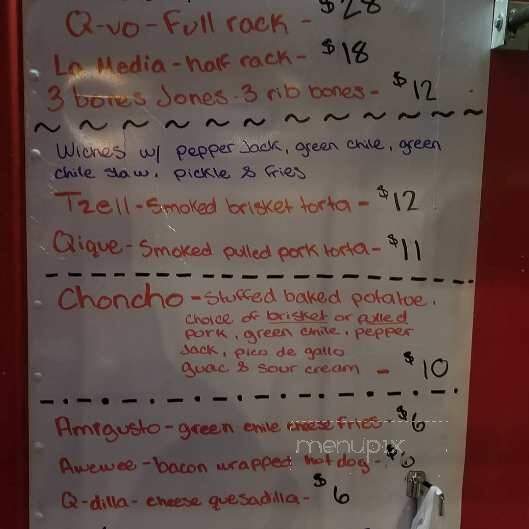 Q-vo-Full rack - $28
La Media-half rack- $18
3 bones Jones-3 rib bones- $12
Wiches w/ pepper Jack, green chile, green
chile slaw, pickle & fries
Tzell-Smoked brisket torta - $12
Qique-Smoked pulled pork torta- $11
Choncho-Stuffed baked potatoe,
choice of brisket or pulled
pork, green chile, pepper
Jack, pico de gallo
guac & sour cream - $10
Amigusto-green chile cheese fries- $6
menupix
Awewee-bacon wrapped hot dog-$
Q-dilla- cheese quesadilla- $6